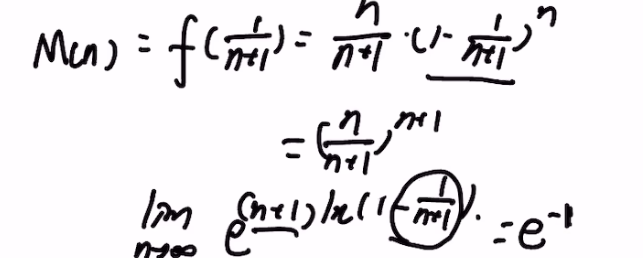 M(n) = f(1/(n+1)) = n/(n+1) · (1 - 1/(n+1))^n
= (n/(n+1))^(n+1)
lim n→∞ e^((n+1) ln(1 - 1/(n+1))). = e^(-1)